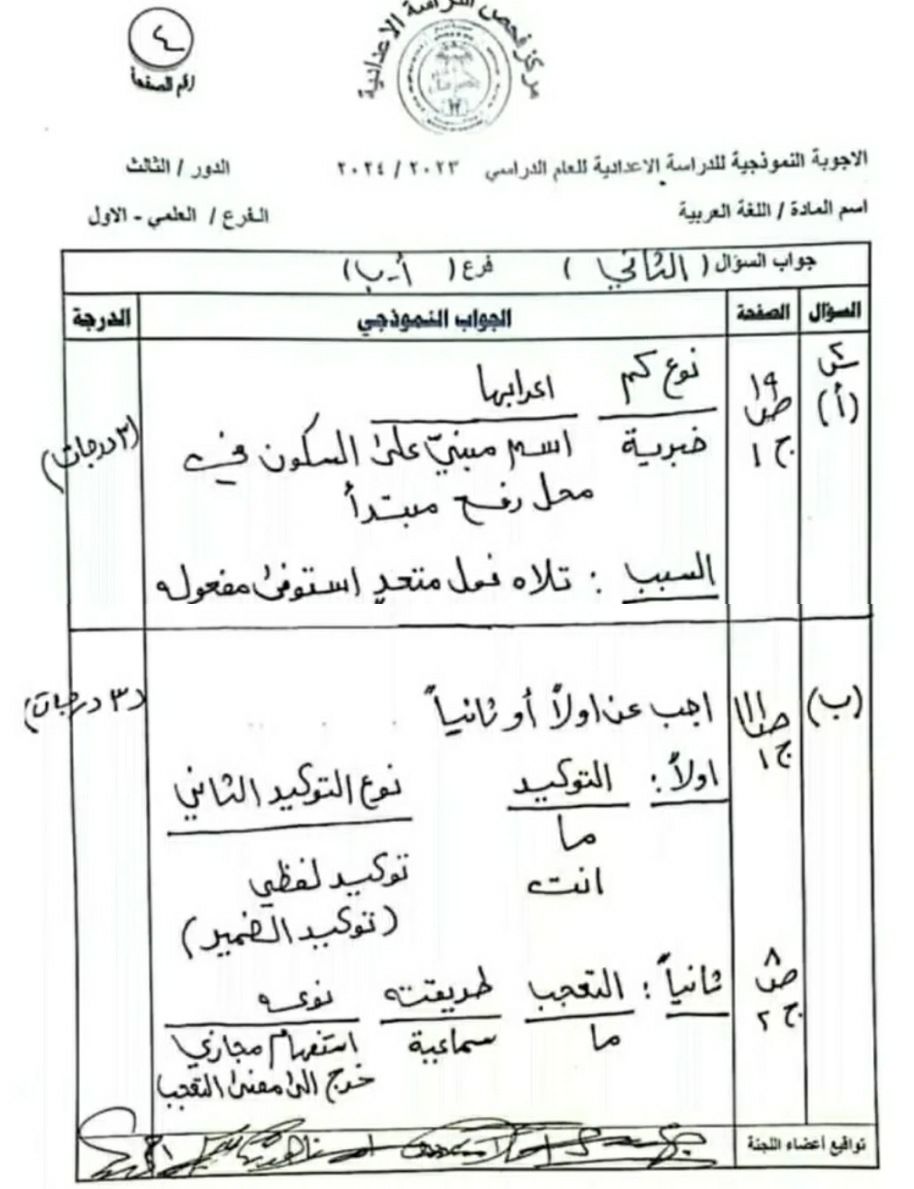 ٤
رقم الصفحة
مركز فحص الدراسة الاعدادية
الاجوبة النموذجية للدراسة الاعدادية للعام الدراسي ٢٠٢٣ / ٢٠٢٤ الدور / الثالث
اسم المادة / اللغة العربية الفرع / العلمي - الاول
جواب السؤال ( الثاني ) فرع ( أ-ب )
السؤال الصفحة الجواب النموذجي الدرجة
(أ) ص ١٩ ج ١ نوع كم اعرابها
خبرية اسم مبنيّ على السكون في (٣ درجات)
محل رفع مبتدأ
السبب : تلاه فعل متعدٍ استوفى مفعوله
(ب) ص ١١١ ج ١ اجب عن اولاً أو ثانياً (٣ درجات)
اولاً : التوكيد نوع التوكيد الثاني
ما
انت توكيد لفظي
(توكيد الضمير)
ص ٨ ج ٢ ثانياً : التعجب طريقته نوعه
ما سماعية استفهام مجازي
خرج الى معنى التعجب
تواقيع أعضاء اللجنة